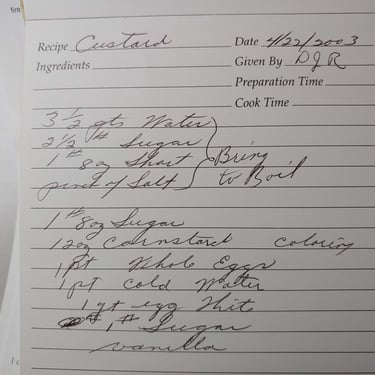 Recipe Custard Date 4/22/2003
Ingredients Given By DJR
Preparation Time
Cook Time
3 1/2 qts Water
2 1/2 # Sugar
1 # 8oz Short Bring
pinct of Salt to Boil
1 # 8oz Sugar
12oz Cornstarct Coloring
1 pt Whole Eggs
1 pt Cold Water
1 qt egg Whits
1 # Sugar
vanilla